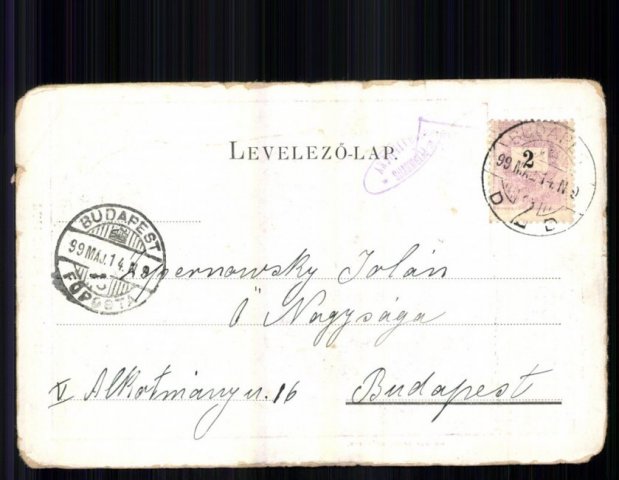 LEVELEZŐ-LAP.
2
99 MÁJ. 14. N 9
BUDAPEST
99 MÁJ. 14. N 9
FŐPOSTA
Jolán
Ő Nagysága
V Alkotmány u. 16 Budapest